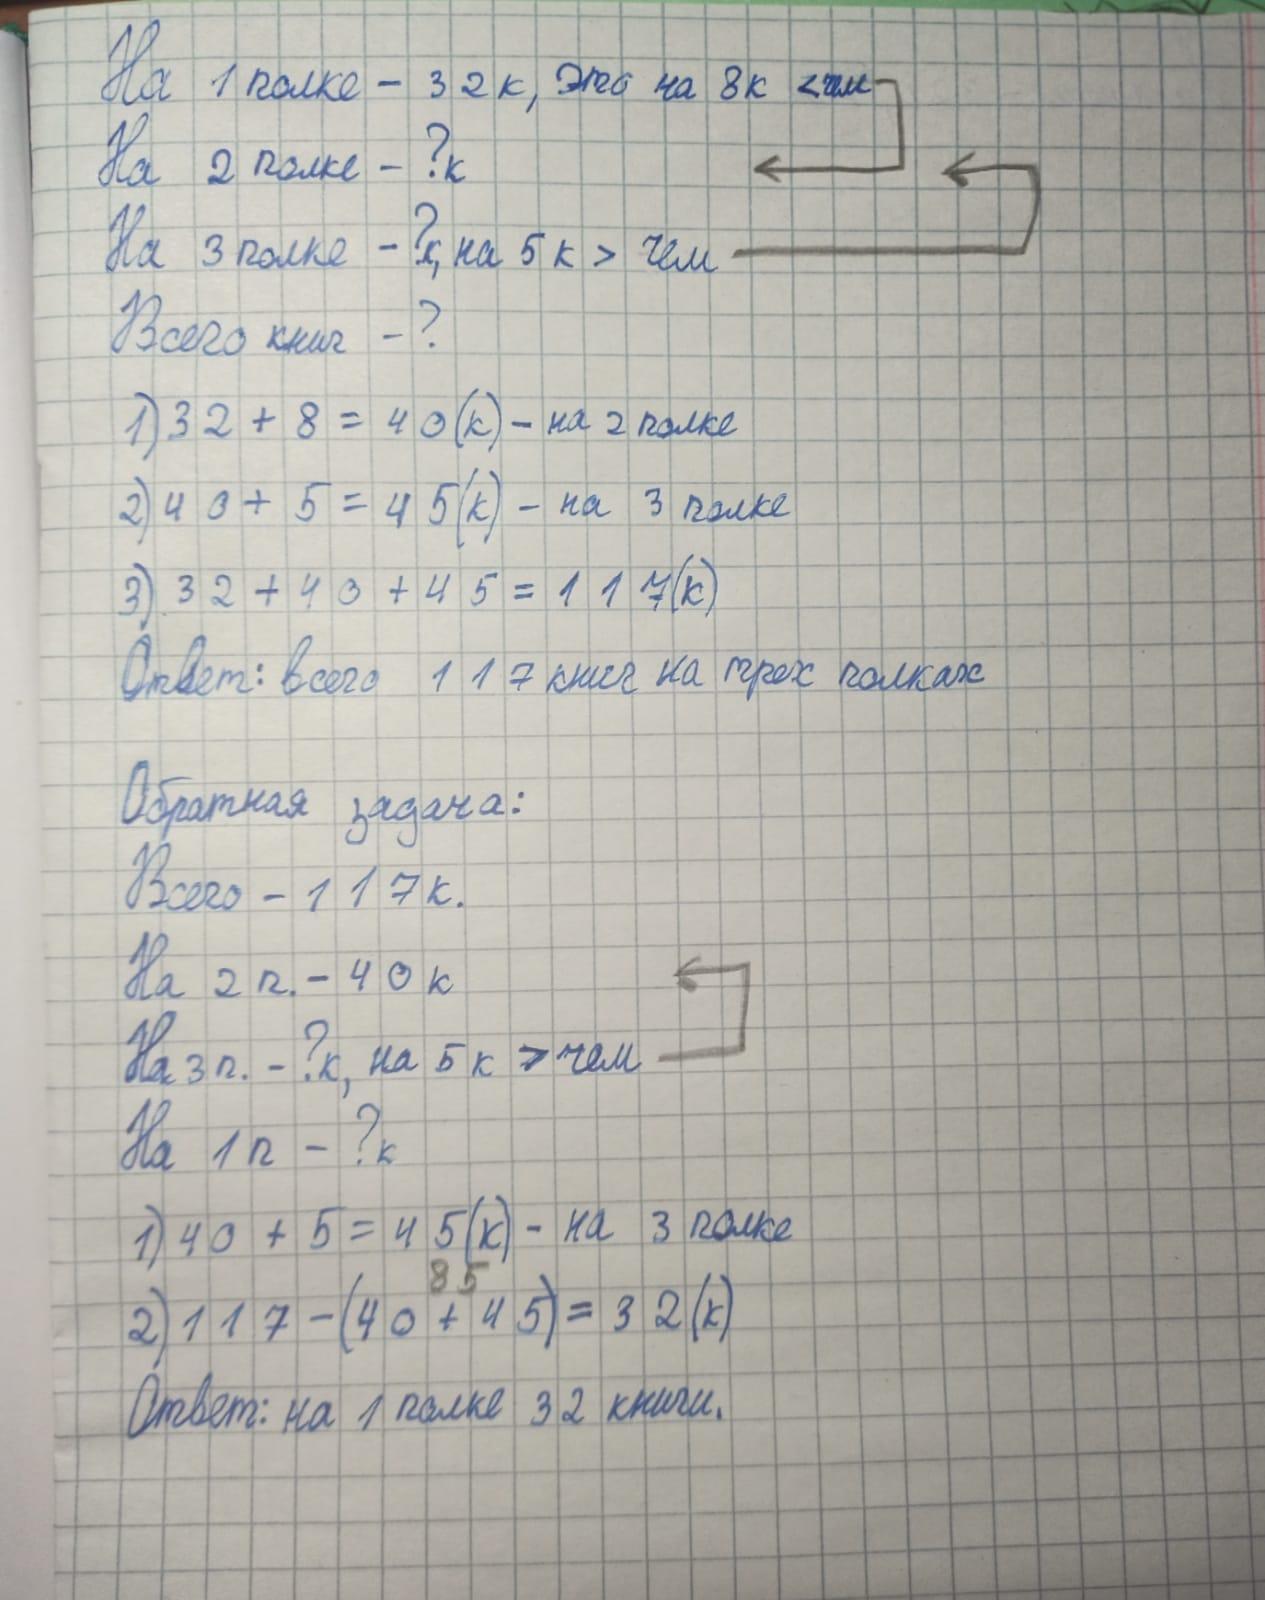 На 1 полке - 32к, это на 8к < чем
На 2 полке - ?к
На 3 полке - ?к, на 5к > чем
Всего книг - ?
1) 32 + 8 = 40(к) - на 2 полке
2) 40 + 5 = 45(к) - на 3 полке
3) 32 + 40 + 45 = 117(к)
Ответ: всего 117 книг на трех полках
Обратная задача:
Всего - 117к.
На 2п. - 40к
На 3п. - ?к, на 5к > чем
На 1п - ?к
1) 40 + 5 = 45(к) - на 3 полке
85
2) 117 - (40 + 45) = 32(к)
Ответ: на 1 полке 32 книги.